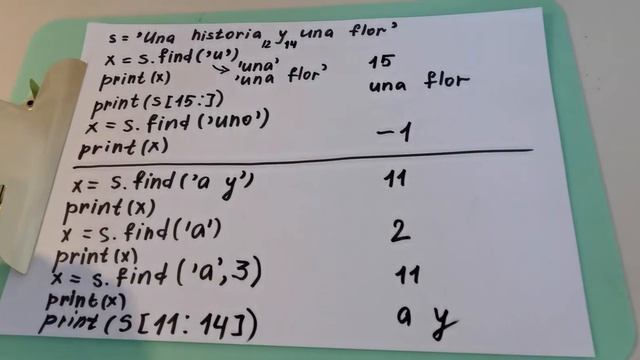 s = 'Una historia y una flor'
12 14
x = s.find('u') 15
→ 'una'
print(x) 'una flor' una flor
print(s[15:])
x = s.find('uno')
print(x) -1
x = s.find('a y') 11
print(x)
x = s.find('a') 2
print(x)
x = s.find('a',3) 11
print(x)
print(s[11:14]) a y